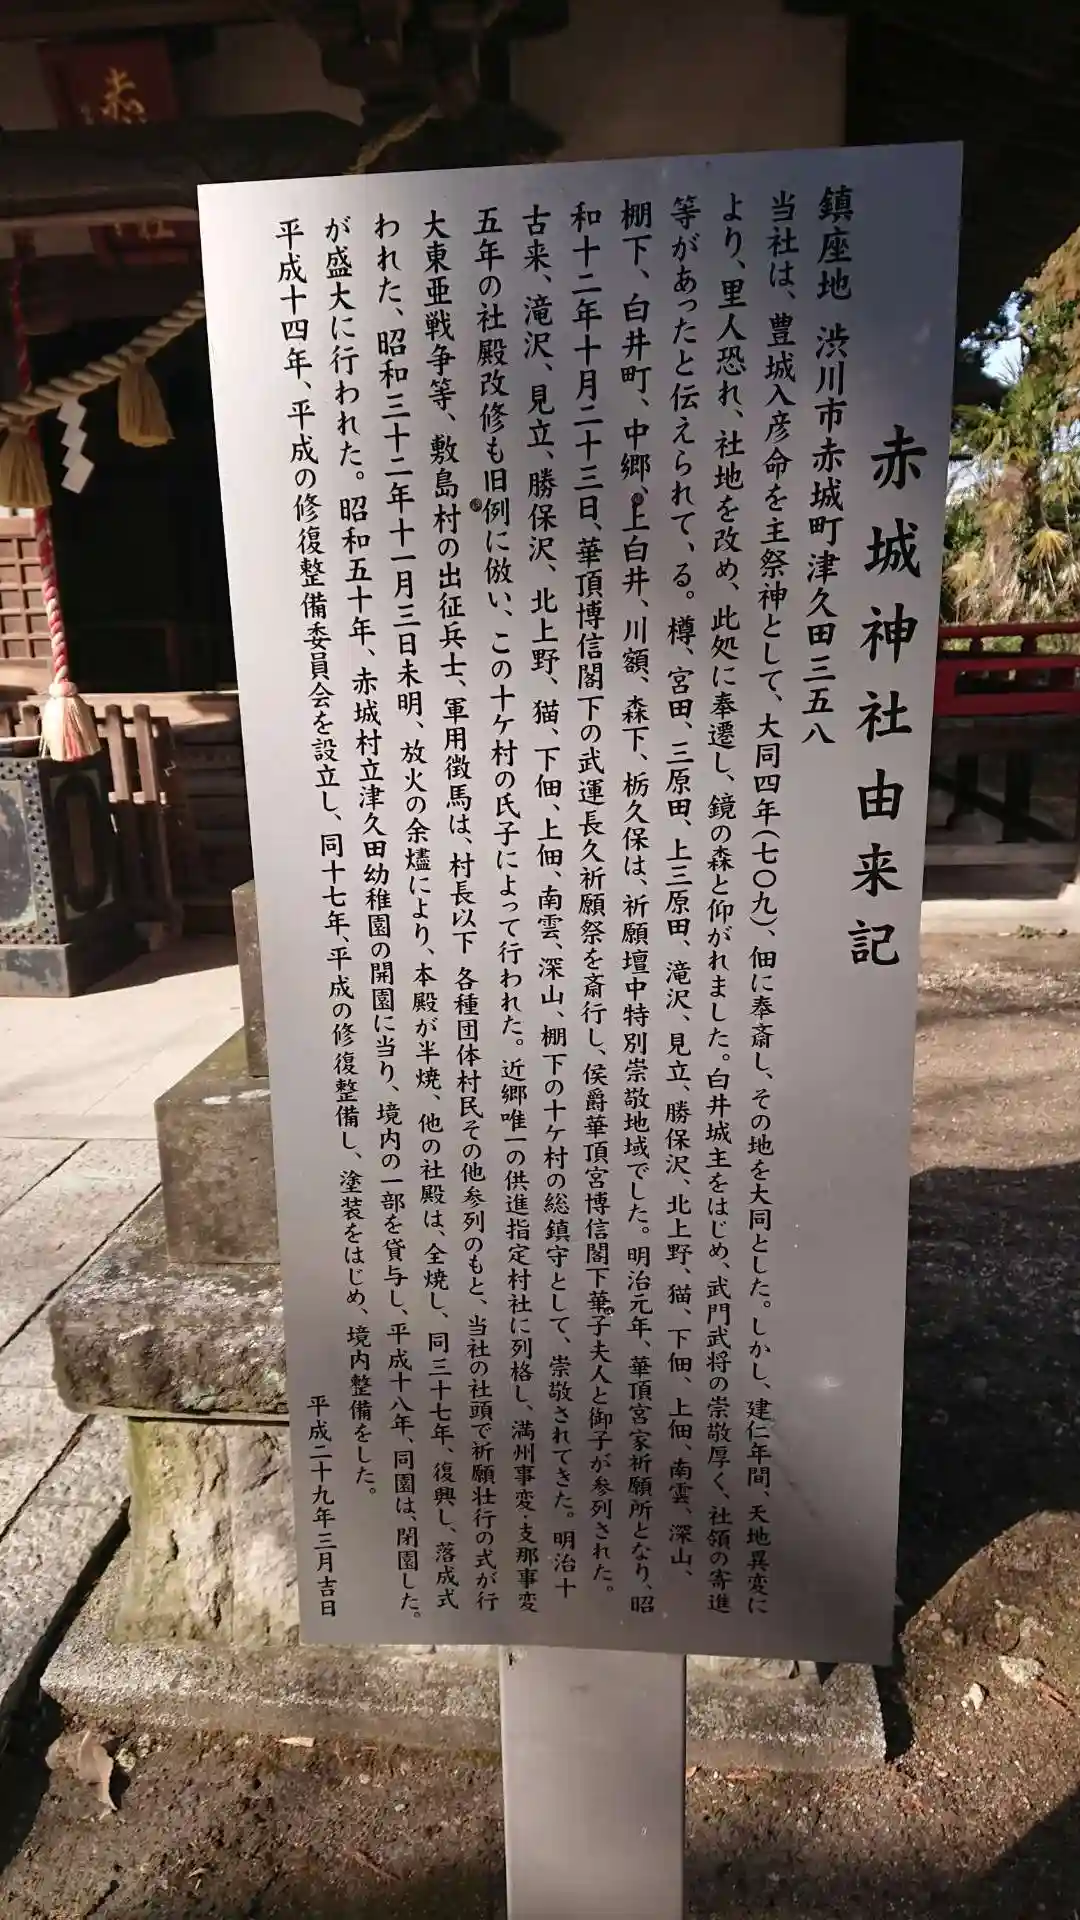 赤城神社由来記
鎮座地 渋川市赤城町津久田三五八
当社は、豊城入彦命を主祭神として、大同四年(七〇九)、佃に奉斎し、その地を大同とした。しかし、建仁年間、天地異変に
より、里人恐れ、社地を改め、此処に奉遷し、鏡の森と仰がれました。白井城主をはじめ、武門武将の崇敬厚く、社領の寄進
等があったと伝えられて、る。樽、宮田、三原田、上三原田、滝沢、見立、勝保沢、北上野、猫、下佃、上佃、南雲、深山、
棚下、白井町、中郷、上白井、川額、森下、栃久保は、祈願壇中特別崇敬地域でした。明治元年、華頂宮家祈願所となり、昭
和十二年十月二十三日、華頂博信閣下の武運長久祈願祭を斎行し、侯爵華頂宮博信閣下華子夫人と御子が参列された。
古来、滝沢、見立、勝保沢、北上野、猫、下佃、上佃、南雲、深山、棚下の十ケ村の総鎮守として、崇敬されてきた。明治十
五年の社殿改修も旧例に倣い、この十ケ村の氏子によって行われた。近郷唯一の供進指定村社に列格し、満州事変・支那事変
大東亜戦争等、敷島村の出征兵士、軍用徴馬は、村長以下 各種団体村民その他参列のもと、当社の社頭で祈願壮行の式が行
われた、昭和三十二年十一月三日未明、放火の余燼により、本殿が半焼、他の社殿は、全焼し、同三十七年、復興し、落成式
が盛大に行われた。昭和五十年、赤城村立津久田幼稚園の開園に当り、境内の一部を貸与し、平成十八年、同園は、閉園した。
平成十四年、平成の修復整備委員会を設立し、同十七年、平成の修復整備し、塗装をはじめ、境内整備をした。
平成二十九年三月吉日
赤
社